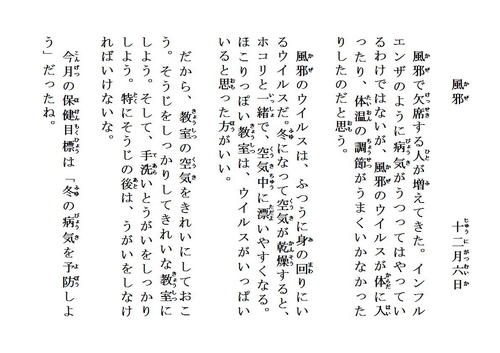 風邪　十二月六日
風邪で欠席する人が増えてきた。インフル
エンザのように病気がうつってはやってい
るわけではないが、風邪のウイルスが体に入
ったり、体温の調節がうまくいかなかった
りしたのだと思う。
風邪のウイルスは、ふつうに身の回りにい
るウイルスだ。冬になって空気が乾燥すると、
ホコリと一緒で、空気中に漂いやすくなる。
ほこりっぽい教室は、ウイルスがいっぱい
いると思った方がいい。
だから、教室の空気をきれいにしておこ
う。そうじをしっかりしてきれいな教室に
しよう。そして、手洗いとうがいをしっかり
しよう。特にそうじの後は、うがいをしなけ
ればいけないな。
今月の保健目標は「冬の病気を予防しよ
う」だったね。